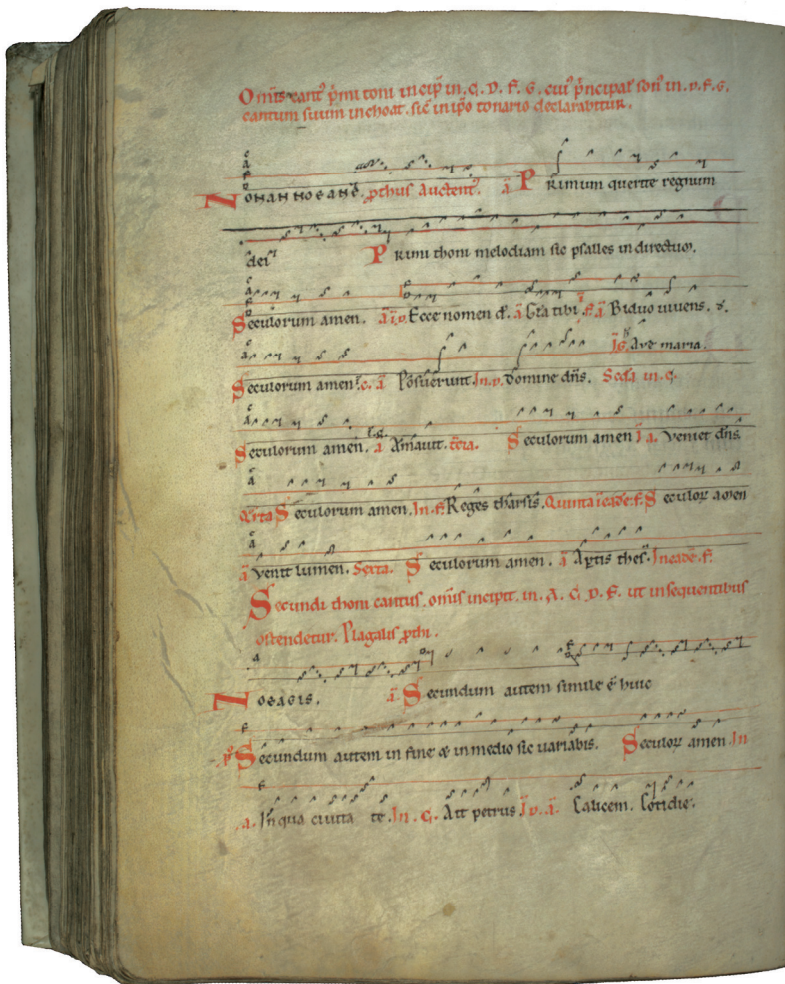 Om̅is cant᷒ p̅mi toni incip̅ in. C. D. F. G. cui᷒ p̅ncipal̅ son᷒ in. D. F. G.
cantum suum inchoat. sic̅ in ip̅o tonario declarabitur.
Nonannoeane. p̅thus Auctent᷒. a̅ Primum querite regnum
dei Primi thoni melodiam sic psalles in directum.
Seculorum amen. a̅ i̅. D. Ecce nomen d̅. a̅ Gr̅a tibi. F. a̅ Biduo vivens. &.
IG. Ave maria.
Seculorum amen. a̅ Posuerunt. In. D. Domine dn̅s. Sc̅da in. C.
Seculorum amen. a Amavit. t̅cia. Seculorum amen I a. Veniet dn̅s
Q̅rta Seculorum amen. In. F. Reges tharsis. Quinta i̅ eade̅. F. Seculoꝝ amen
a̅ Venit lumen. Sexta. Seculorum amen. a̅ Ap̅tis thes᷒. In eade̅. F.
Secundi thoni cantus. om̅is incipit. in. A. C. D. F. ut in sequentibus
ostendetur. Plagalis p̅thi.
Noeagis. a̅ Secundum autem simile e̅ huic
p᷒ Secundum autem in fine & in medio sic variabis. Seculoꝝ amen. In
.a. In qua civita te. In. C. Ait petrus I̅ D. a̅. Calicem. Cotidie.